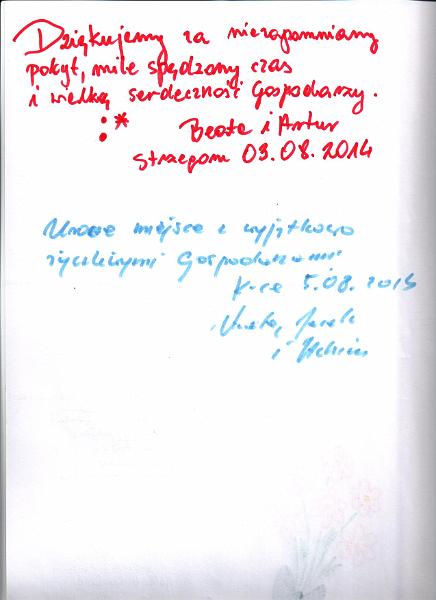 Dziękujemy za niezapomniany
pobyt, mile spędzony czas
i wielką serdeczność Gospodarzy.
:*
Beata i Artur
Strzegom 03.08.2014
Urocze miejsce z wyjątkowo
życzliwymi Gospodarzami
K-ce 5.08.2015
Jacek
i